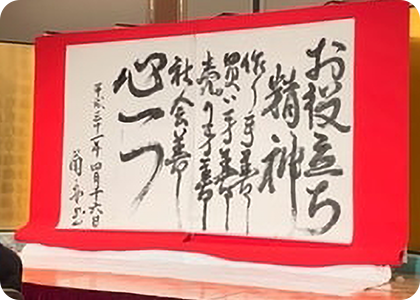 お役立ち
精神
作り手善し
買い手善し
売り手善し
社会善し
心一つ
平成三十一年四月十六日